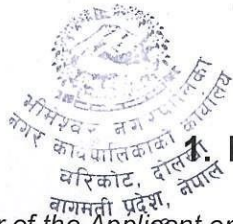 भीमेश्वर नगरपालिका
नगर कार्यपालिकाको कार्यालय
चरिकोट, दोलखा
बागमती प्रदेश, नेपाल
1.
of the Applicant or